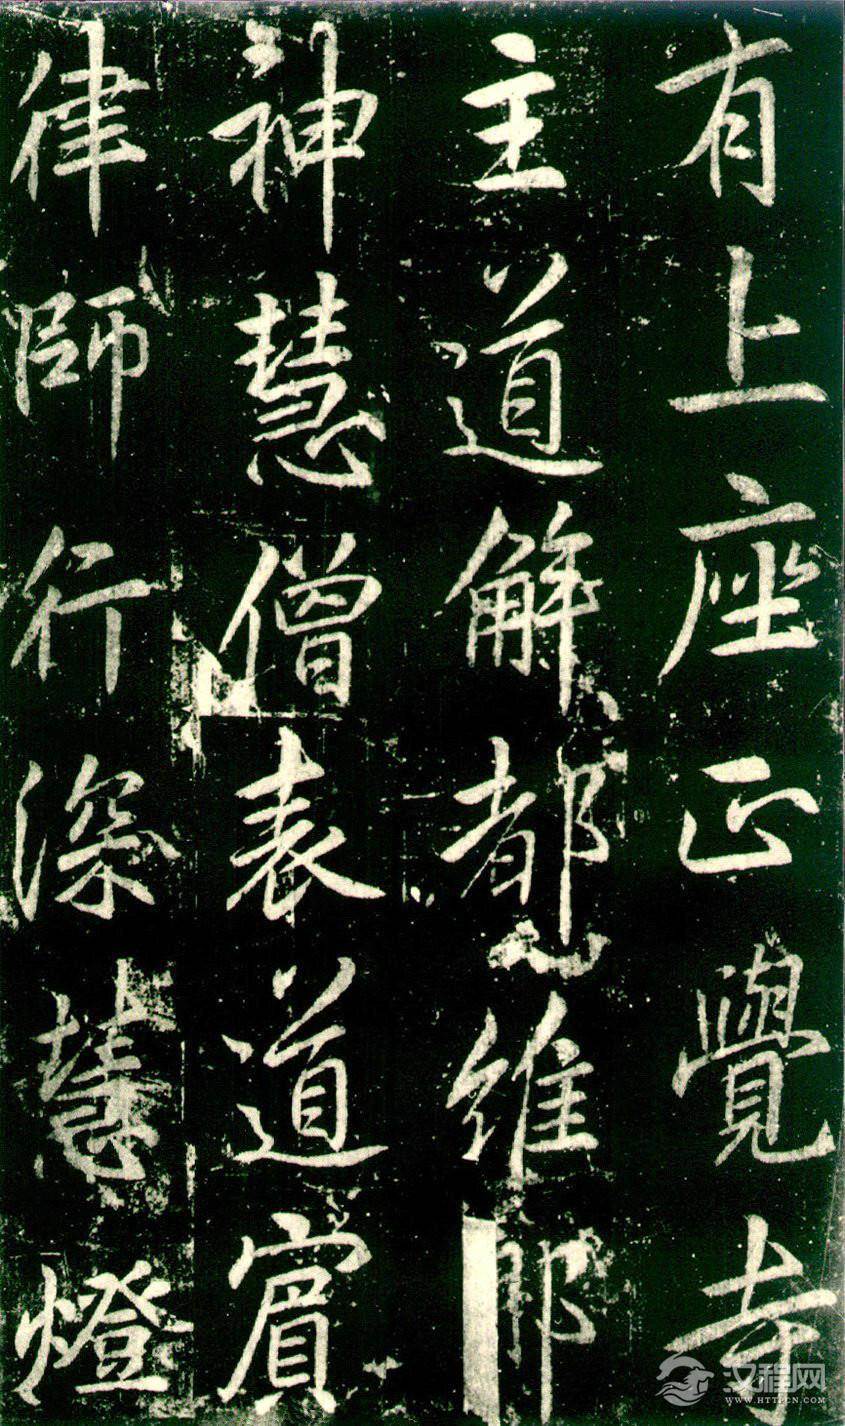 有上座正覺寺
主道解都維那
神慧僧表道賓
律師行深慧燈
汉程网
WWW.HTTPCN.COM